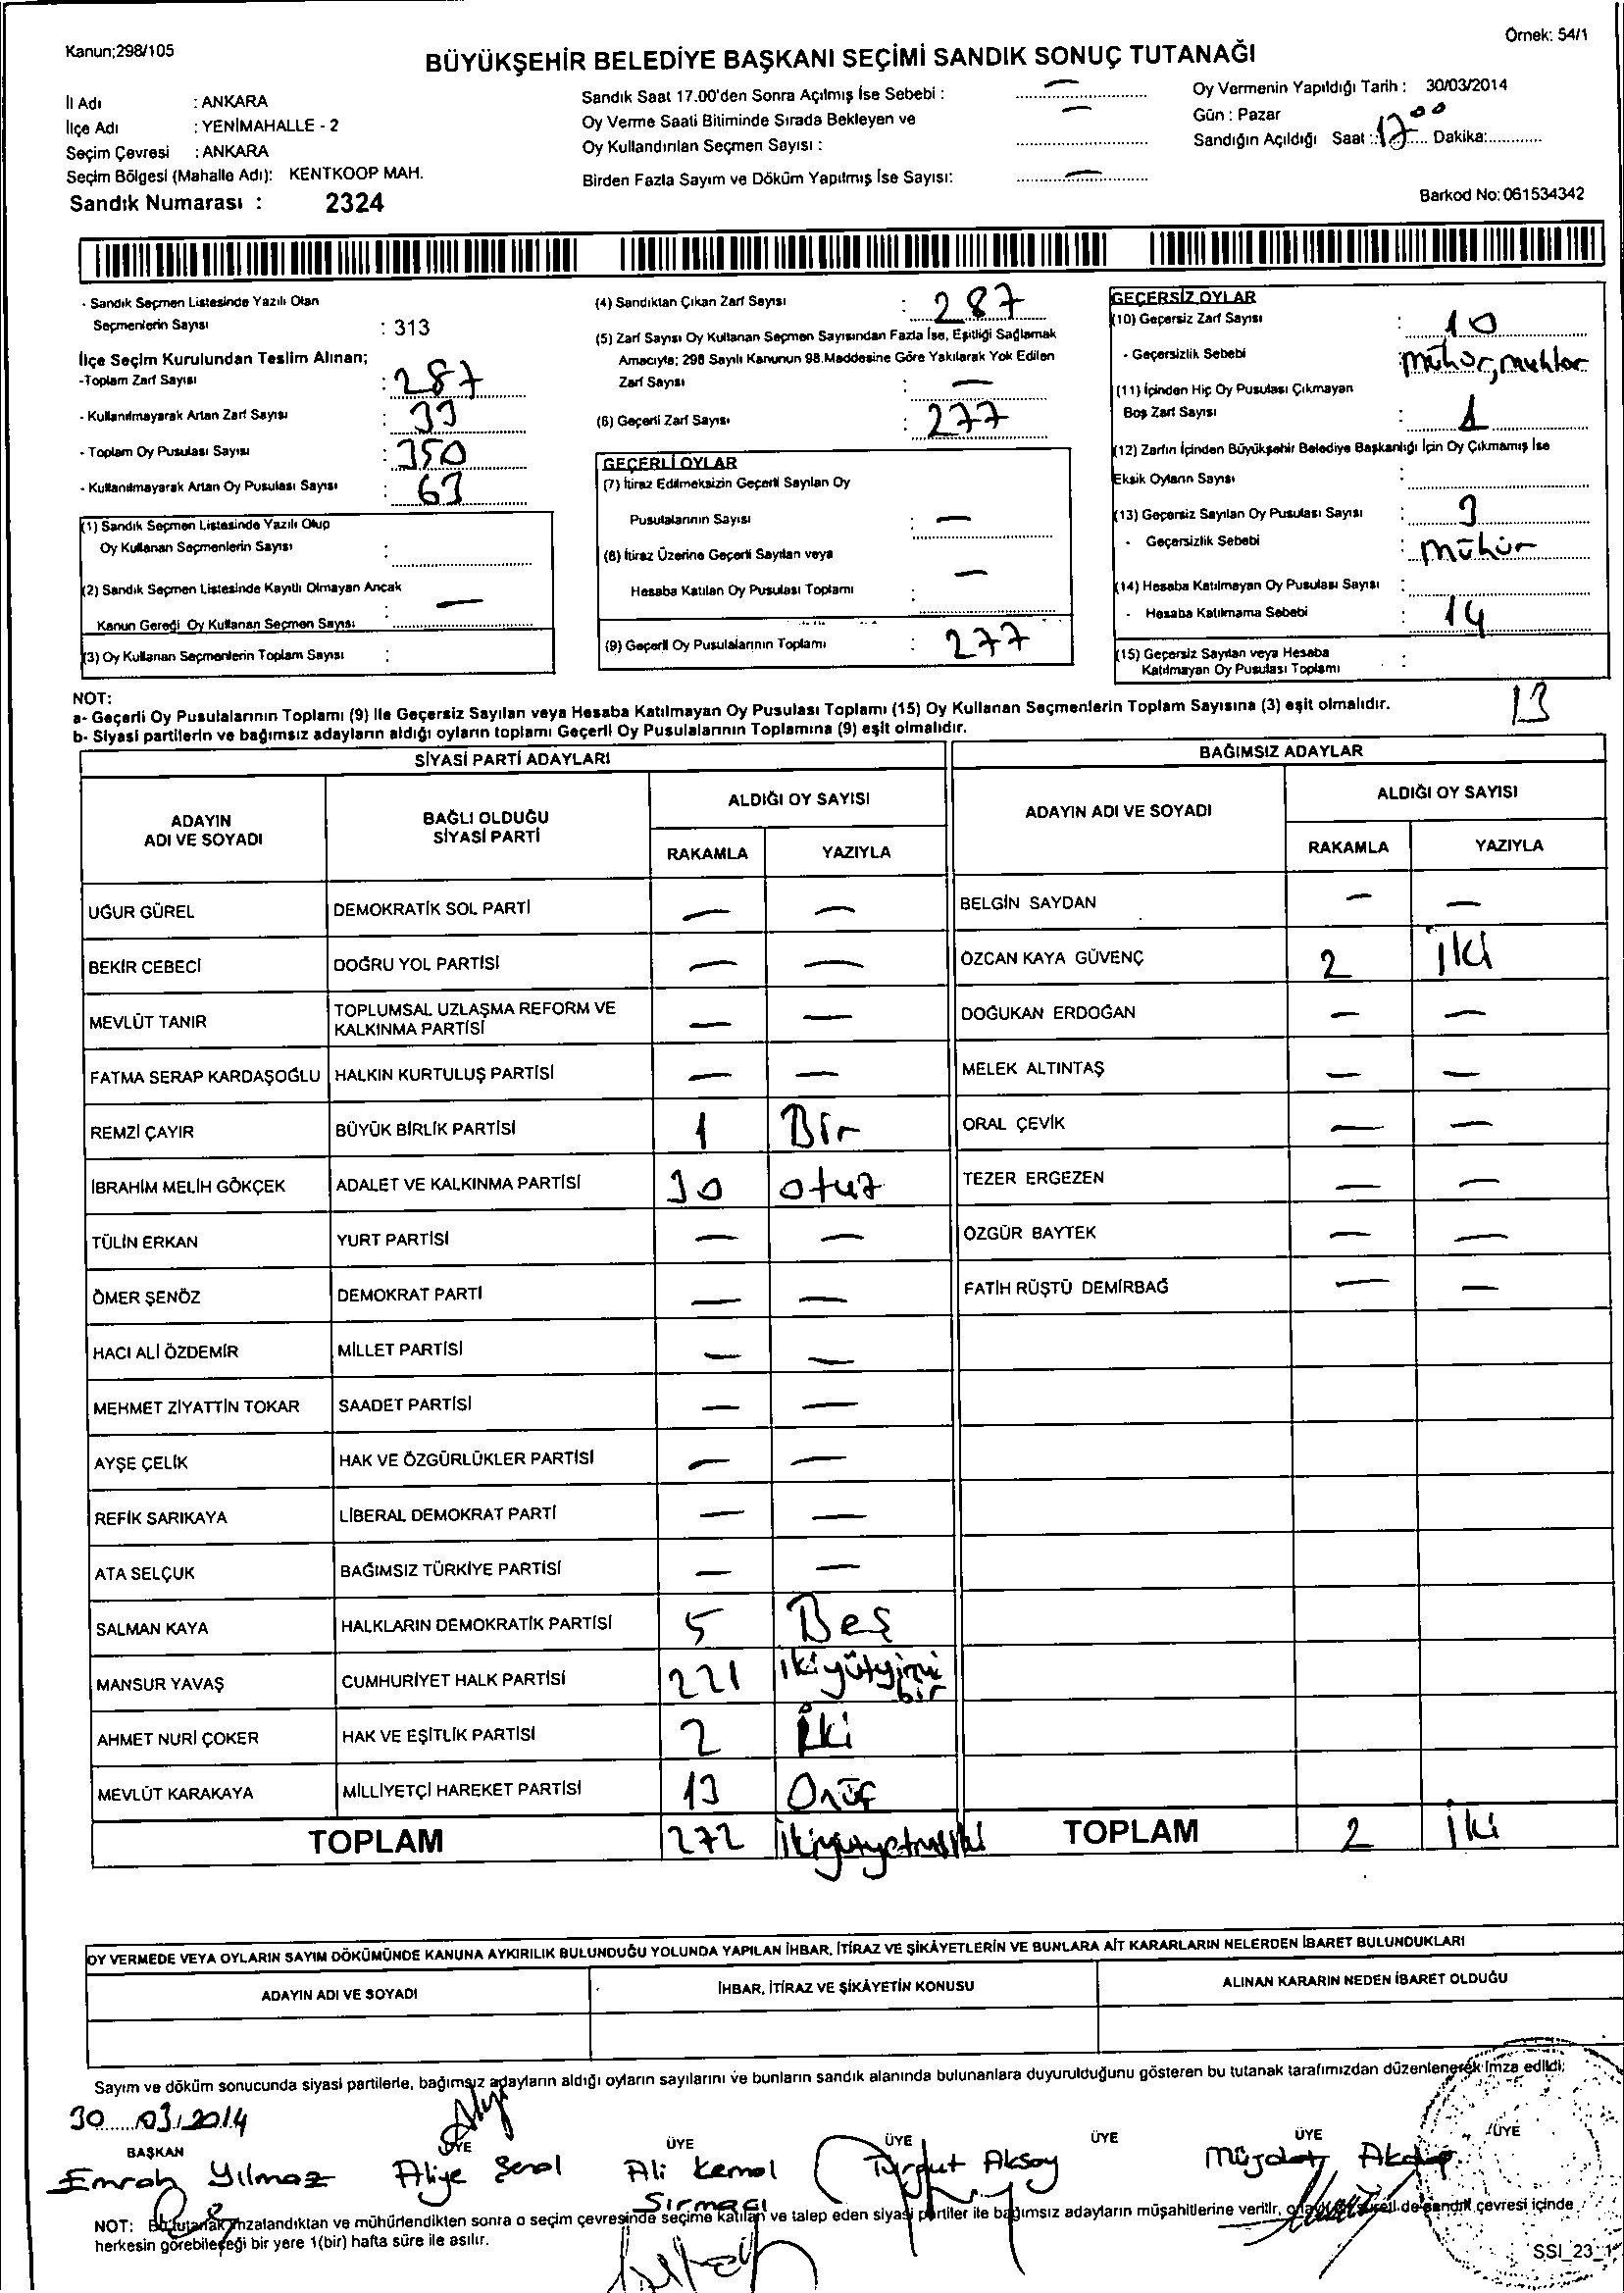 Kanun;298/105
Örnek: 54/1
BÜYÜKŞEHİR BELEDİYE BAŞKANI SEÇİMİ SANDIK SONUÇ TUTANAĞI
İl Adı : ANKARA
İlçe Adı : YENİMAHALLE - 2
Seçim Çevresi : ANKARA
Seçim Bölgesi (Mahalle Adı): KENTKOOP MAH.
Sandık Numarası : 2324
Sandık Saat 17.00'den Sonra Açılmış İse Sebebi : —
Oy Verme Saati Bitiminde Sırada Bekleyen ve —
Oy Kullandırılan Seçmen Sayısı :
Birden Fazla Sayım ve Döküm Yapılmış İse Sayısı: —
Oy Vermenin Yapıldığı Tarih : 30/03/2014
Gün : Pazar
Sandığın Açıldığı Saat : 17 00 Dakika:
Barkod No: 061534342
- Sandık Seçmen Listesinde Yazılı Olan
Seçmenlerin Sayısı : 313
İlçe Seçim Kurulundan Teslim Alınan;
-Toplam Zarf Sayısı : 287
- Kullanılmayarak Artan Zarf Sayısı : 33
- Toplam Oy Pusulası Sayısı : 350
- Kullanılmayarak Artan Oy Pusulası Sayısı : 63
(1) Sandık Seçmen Listesinde Yazılı Olup
Oy Kullanan Seçmenlerin Sayısı :
(2) Sandık Seçmen Listesinde Kayıtlı Olmayan Ancak
Kanun Gereği Oy Kullanan Seçmen Sayısı : —
(3) Oy Kullanan Seçmenlerin Toplam Sayısı :
(4) Sandıktan Çıkan Zarf Sayısı : 287
(5) Zarf Sayısı Oy Kullanan Seçmen Sayısından Fazla İse, Eşitliği Sağlamak
Amacıyla; 298 Sayılı Kanunun 98.Maddesine Göre Yakılarak Yok Edilen
Zarf Sayısı : —
(6) Geçerli Zarf Sayısı : 277
GEÇERLİ OYLAR
(7) İtiraz Edilmeksizin Geçerli Sayılan Oy
Pusulalarının Sayısı : —
(8) İtiraz Üzerine Geçerli Sayılan veya
Hesaba Katılan Oy Pusulası Toplamı : —
(9) Geçerli Oy Pusulalarının Toplamı : 277
GEÇERSİZ OYLAR
(10) Geçersiz Zarf Sayısı : 10
- Geçersizlik Sebebi mühür, muhtar
(11) İçinden Hiç Oy Pusulası Çıkmayan
Boş Zarf Sayısı : 1
(12) Zarfın İçinden Büyükşehir Belediye Başkanlığı İçin Oy Çıkmamış İse
Eksik Oyların Sayısı :
(13) Geçersiz Sayılan Oy Pusulası Sayısı : 3
- Geçersizlik Sebebi : mühür
(14) Hesaba Katılmayan Oy Pusulası Sayısı :
- Hesaba Katılmama Sebebi : 14
(15) Geçersiz Sayılan veya Hesaba
Katılmayan Oy Pusulası Toplamı :
13
NOT:
a- Geçerli Oy Pusulalarının Toplamı (9) İle Geçersiz Sayılan veya Hesaba Katılmayan Oy Pusulası Toplamı (15) Oy Kullanan Seçmenlerin Toplam Sayısına (3) eşit olmalıdır.
b- Siyasi partilerin ve bağımsız adayların aldığı oyların toplamı Geçerli Oy Pusulalarının Toplamına (9) eşit olmalıdır.
SİYASİ PARTİ ADAYLARI
ADAYIN ADI VE SOYADI BAĞLI OLDUĞU SİYASİ PARTİ ALDIĞI OY SAYISI
RAKAMLA YAZIYLA
UĞUR GÜREL DEMOKRATİK SOL PARTİ — —
BEKİR CEBECİ DOĞRU YOL PARTİSİ — —
MEVLÜT TANIR TOPLUMSAL UZLAŞMA REFORM VE KALKINMA PARTİSİ — —
FATMA SERAP KARDAŞOĞLU HALKIN KURTULUŞ PARTİSİ — —
REMZİ ÇAYIR BÜYÜK BİRLİK PARTİSİ 1 Bir
İBRAHİM MELİH GÖKÇEK ADALET VE KALKINMA PARTİSİ 30 otuz
TÜLİN ERKAN YURT PARTİSİ — —
ÖMER ŞENÖZ DEMOKRAT PARTİ — —
HACI ALİ ÖZDEMİR MİLLET PARTİSİ — —
MEHMET ZİYATTİN TOKAR SAADET PARTİSİ — —
AYŞE ÇELİK HAK VE ÖZGÜRLÜKLER PARTİSİ — —
REFİK SARIKAYA LİBERAL DEMOKRAT PARTİ — —
ATA SELÇUK BAĞIMSIZ TÜRKİYE PARTİSİ — —
SALMAN KAYA HALKLARIN DEMOKRATİK PARTİSİ 5 Beş
MANSUR YAVAŞ CUMHURİYET HALK PARTİSİ 221 ikiyüzyirmi bir
AHMET NURİ ÇOKER HAK VE EŞİTLİK PARTİSİ 2 İki
MEVLÜT KARAKAYA MİLLİYETÇİ HAREKET PARTİSİ 13 Onüç
TOPLAM 272 ikiyüzyetmişiki
BAĞIMSIZ ADAYLAR
ADAYIN ADI VE SOYADI ALDIĞI OY SAYISI
RAKAMLA YAZIYLA
BELGİN SAYDAN — —
ÖZCAN KAYA GÜVENÇ 2 iki
DOĞUKAN ERDOĞAN — —
MELEK ALTINTAŞ — —
ORAL ÇEVİK — —
TEZER ERGEZEN — —
ÖZGÜR BAYTEK — —
FATİH RÜŞTÜ DEMİRBAĞ — —
TOPLAM 2 iki
OY VERMEDE VEYA OYLARIN SAYIM DÖKÜMÜNDE KANUNA AYKIRILIK BULUNDUĞU YOLUNDA YAPILAN İHBAR, İTİRAZ VE ŞİKÂYETLERİN VE BUNLARA AİT KARARLARIN NELERDEN İBARET BULUNDUKLARI
ADAYIN ADI VE SOYADI İHBAR, İTİRAZ VE ŞİKÂYETİN KONUSU ALINAN KARARIN NEDEN İBARET OLDUĞU
Sayım ve döküm sonucunda siyasi partilerle, bağımsız adayların aldığı oyların sayılarını ve bunların sandık alanında bulunanlara duyurulduğunu gösteren bu tutanak tarafımızdan düzenlenerek imza edildi;
30 03/2014
BAŞKAN ÜYE ÜYE ÜYE ÜYE ÜYE ÜYE
Emrah Yılmaz Aliye Şenol Ali Kemal Sırmacı Turgut Aksoy Müjdat
NOT: Bu tutanak imzalandıktan ve mühürlendikten sonra o seçim çevresinde seçime katılan ve talep eden siyasi partiler ile bağımsız adayların müşahitlerine verilir, sandık çevresi içinde
herkesin görebileceği bir yere 1(bir) hafta süre ile asılır.
SSI_23_1